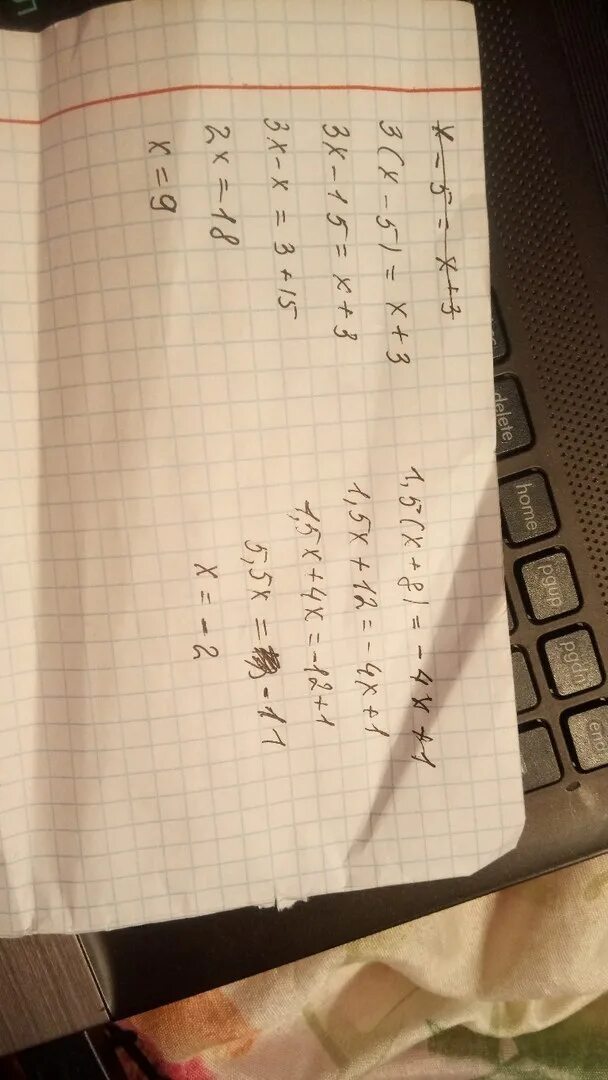 x - 5 = x + 3
3(x - 5) = x + 3
3x - 15 = x + 3
3x - x = 3 + 15
2x = 18
x = 9
1,5(x + 8) = - 4x + 1
1,5x + 12 = - 4x + 1
1,5x + 4x = - 12 + 1
5,5x = - 11
x = - 2
delete
home
pgup
pgdn
end